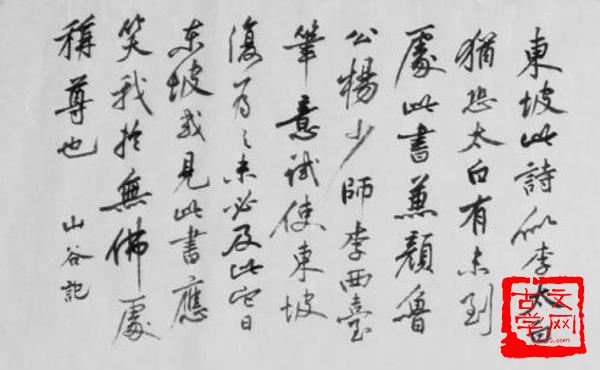 東坡此詩似李太白
猶恐太白有未到
處此書兼顏魯
公楊少師李西臺
筆意試使東坡
復為之未必及此它日
东坡或見此書應
笑我於無佛處
稱尊也 山谷記
古文学网
.com